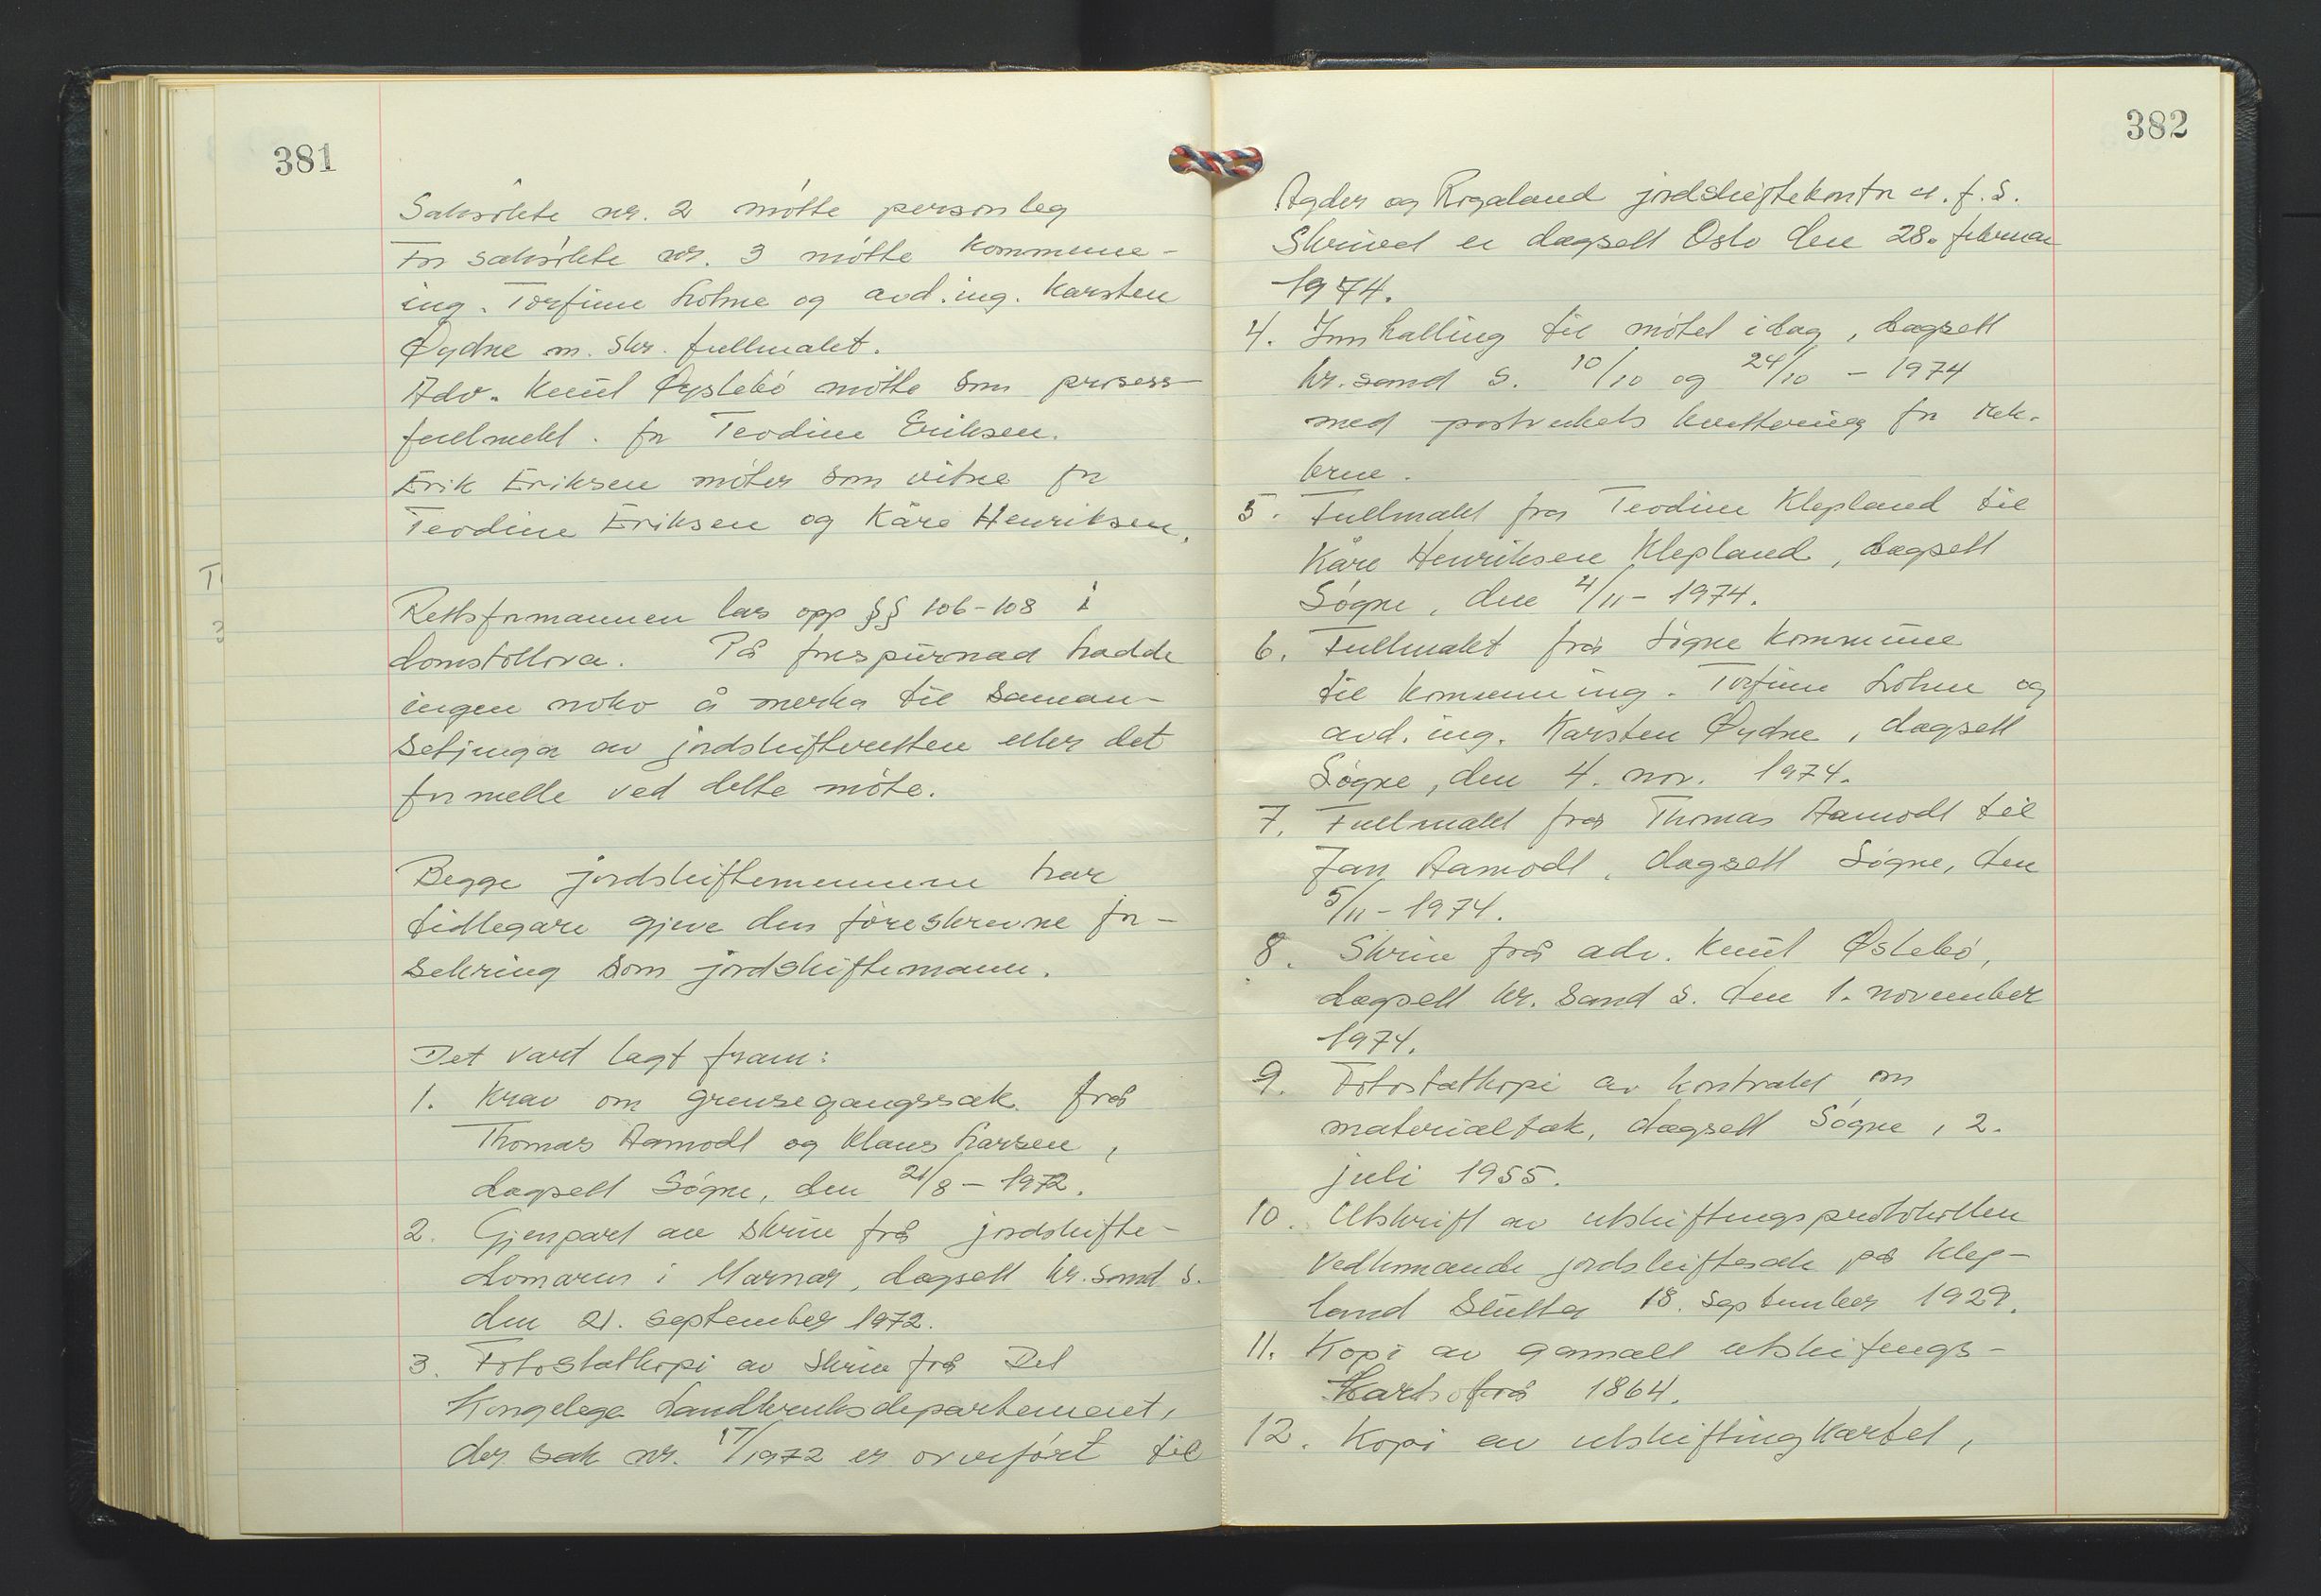 381
Saksökte nr. 2 mötte personleg
For saksökte nr. 3 mötte kommune-
ing. Torfinn Lohne og avd.ing. Karsten
Øydne m. skr. fullmakt.
Adv. Knut Øyslebö mötte som prosess-
fullmekt. for Teodine Eriksen.
Erik Eriksen möter som vitne for
Teodine Eriksen og Kåre Henriksen.
Rettsformannen las opp §§ 106-108 i
domstollova. På førespurnad hadde
ingen noko å merka til saman-
setjinga av jordskifteretten eller det
formelle ved dette möte.
Begge jordskiftemennene har
tidlegare gjeve den föreskrevne for-
sekring som jordskiftemann.
Det vart lagt fram:
1. Krav om grensegangssak frå
Thomas Aamodt og Klaus Larsen,
dagsett Sögne, den 21/8 - 1972.
2. Gjenpart av skriv frå jordskifte-
domaren i Marnar, dagsett Kr.sand S.
den 21. september 1972.
3. Fotostatkopi av skriv frå Det
Kongelege Landbruksdepartement,
der sak nr. 17/1972 er overfört til
T
3
382
Agder og Rogaland jordskiftekontor a.f.s.
Skrivet er dagsett Oslo den 28. februar
1974.
4. Innkalling til mötet idag, dagsett
Kr.sand S. 10/10 og 24/10 - 1974
med postverkets kvittering for rek.
breve.
5. Fullmakt fra Teodine Klepland til
Kåre Henriksen Klepland, dagsett
Sögne, den 4/11 - 1974.
6. Fullmakt frå Sögne kommune
til kommuneing. Torfinn Lohne og
avd. ing. Karsten Øydne, dagsett
Sögne, den 4. nov. 1974.
7. Fullmakt frå Thomas Aamodt til
Jan Aamodt, dagsett Sögne, den
5/11 - 1974.
8. Skriv frå adv. Knut Øslebö,
dagsett Kr. sand S. den 1. november
1974.
9. Fotostatkopi av kontrakt om
materialtak, dagsett Sögne, 2.
juli 1955.
10. Utskrift av utskiftingsprotokollen
vedkomande jordskiftesak på Klep-
land slutta 18. september 1929.
11. Kopi av gamall utskiftings-
kart frå 1864.
12. Kopi av utskiftingkartet,